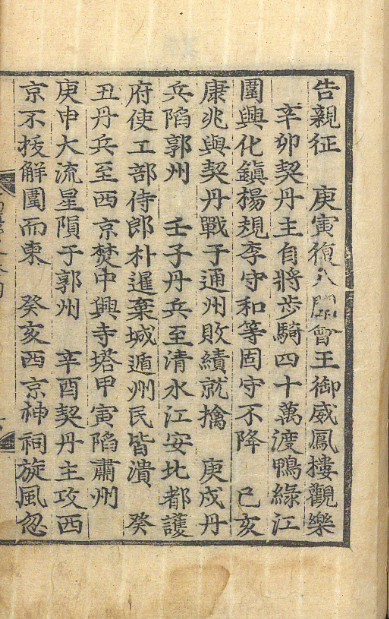 告親征　庚寅復八關會王御威鳳樓觀樂
辛卯契丹主自將步騎四十萬渡鴨綠江
圍興化鎭楊規李守和等固守不降　己亥
康兆與契丹戰于通州敗績就擒　庚戌丹
兵陷郭州　壬子丹兵至清水江安北都護
府使工部侍郎朴暹棄城遁州民皆潰　癸
丑丹兵至西京焚中興寺塔甲寅陷肅州
庚申大流星隕于郭州　辛酉契丹主攻西
京不拔解圍而東　癸亥西京神祠旋風忽